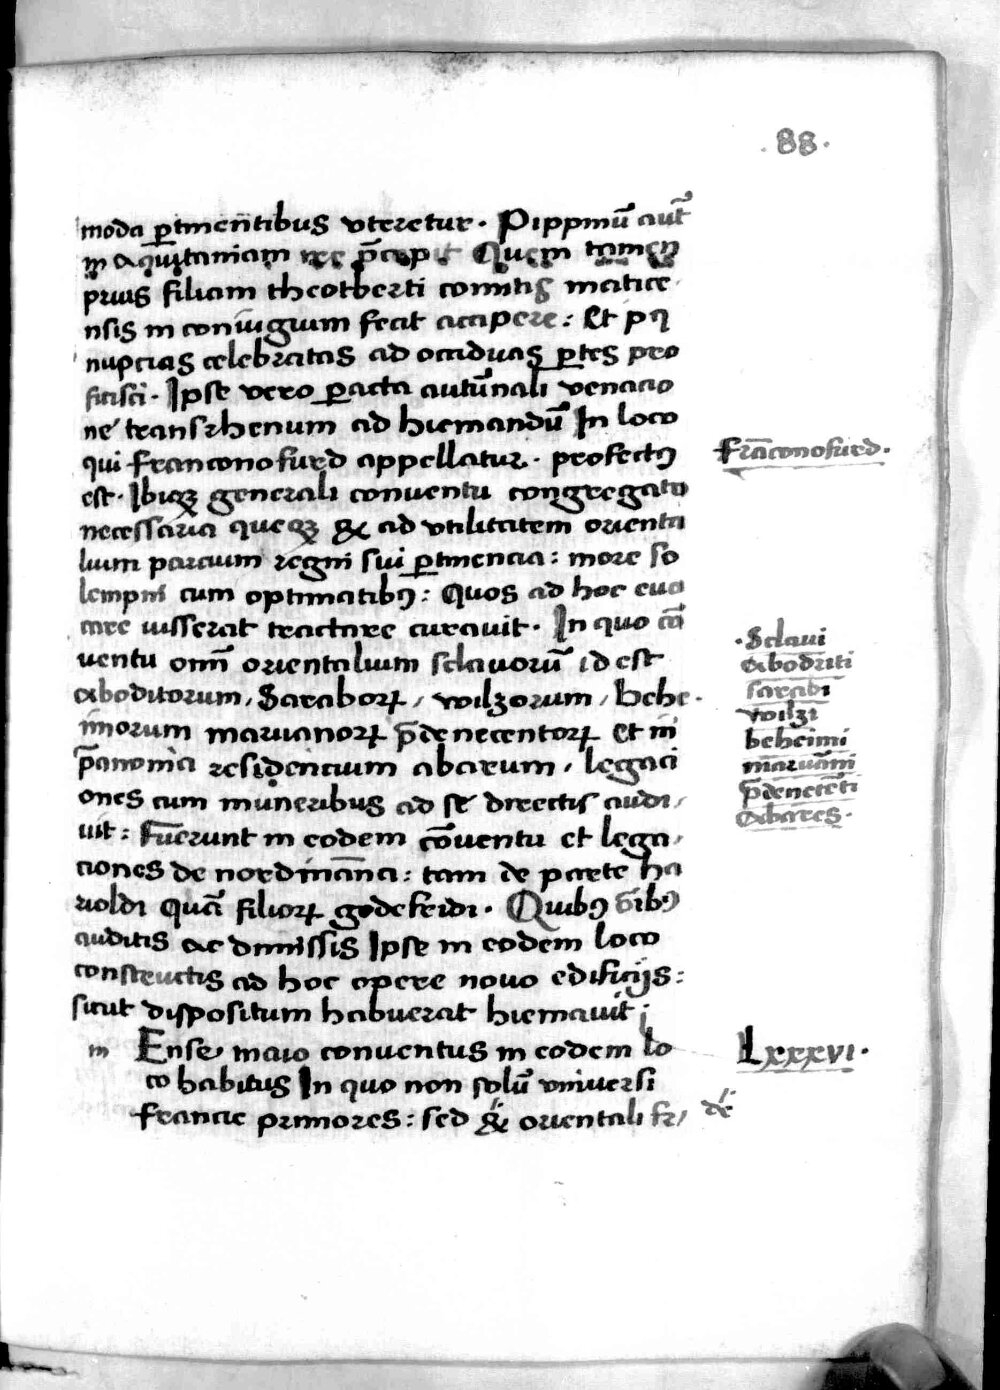 . 88 .
moda ꝑtinentibus vteretur . Pippinū aut̄
in aquitaniam ire p̄cepit Quem tamen
prius filiam theotberti comitis matice
nsis in coniugium fecit accipere : Et pꝰ
nupcias celebratas ad occiduas ꝑtes pro
ficisci . Ipse vero ꝑacta autūnali venacio
ne transrhenum ad hiemandū In loco
qui franconofurd appellatur . profectꝰ
est . Ibiqꝫ generali conuentu congregato
necessaria queqꝫ & ad vtilitatem orienta
lium parcium regni sui ꝑtinencia : more so
lempni cum optimatibꝰ : Quos ad hoc euo
care iusserat tractare curauit . In quo cō
uentu omī orientalium sclauorū id est
aboditorum / Saraborꝝ / wilzorum / Behe
īmorum maruanorꝝ p̄denecentorꝝ et in
p̄anonia residencium abarum / legaci
ones cum muneribus ad se directis audi /
uit : Fuerunt in eodem cōuentu et lega /
ciones de nordmānia : tam de parte ha
rioldi quā filiorꝝ godefridi . Quibꝰ oībꝰ
auditis ac dimissis Ipse in eodem loco
constructis ad hoc opere nouo edificijs :
sicut dispositum habuerat hiemauit
m Ense maio conuentus in eodem lo
co habitus In quo non solū vniuersi
francie primores : sed & orientali fr /
frāconofurd .
. Sclaui
abodriti
sarabi
wilzi
beheimi
maruāni
p̄denecēti
abares .
Lxxxvi .
de